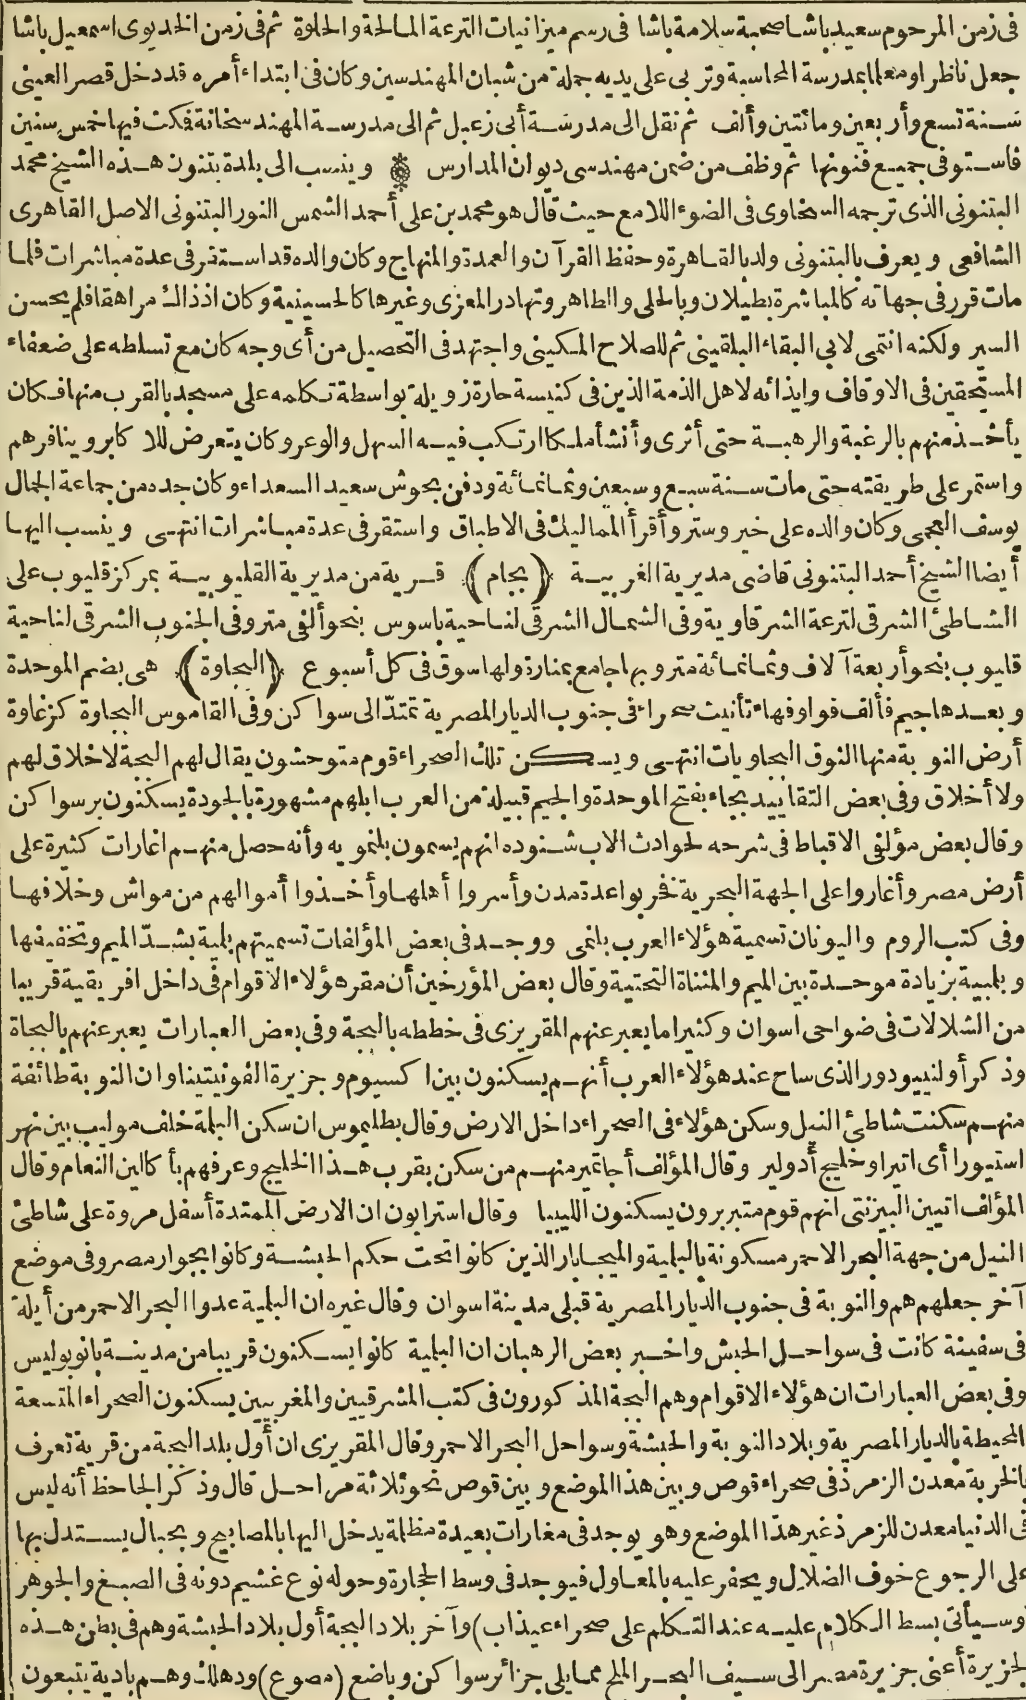 فى زمن المرحوم سعيد باشا صحبة سلامة باشا فى رسم ميزانيات الترعة المالحة والحلوة ثم فى زمن الخديوى اسمعيل باشا
جعل ناظرا ومعلما بمدرسة المحاسبة وتربى على يديه جملة من شبان المهندسين وكان فى ابتداء أمره قد دخل قصر العينى
سنة تسع وأربعين ومائتين وألف ثم نقل الى مدرسة أبى زعبل ثم الى مدرسة المهندسخانة فمكث فيها خمس سنين
فاستوفى جميع فنونها ثم وظف من ضمن مهندسى ديوان المدارس وينسب الى بلدة بتنون هذه الشيخ محمد
البتنونى الذى ترجمه السخاوى فى الضوء اللامع حيث قال هو محمد بن على أحمد الشمس النور البتنونى الاصل القاهرى
الشافعى ويعرف بالبتنونى ولد بالقاهرة وحفظ القرآن والعمدة والمنهاج وكان والده قد استقر فى عدة مباشرات فلما
مات قرر فى جهاته كالمباشرة بطيلان وبالحلى والطاهر وتهادر المعزى وغيرها كالحسينية وكان اذذاك مراهقا فلم يحسن
السير ولكنه انتمى لابى البقاء البلقينى ثم للصلاح المكينى واجتهد فى التحصيل من أى وجه كان مع تسلطه على ضعفاء
المستحقين فى الاوقاف وايذائه لاهل الذمة الذين فى كنيسة حارة زويلة بواسطة تكلمه على مسجد بالقرب منها فكان
يأخذ منهم بالرغبة والرهبة حتى أثرى وأنشأ ملكا ارتكب فيه السهل والوعر وكان يتعرض للاكابر وينافرهم
واستمر على طريقته حتى مات سنة سبع وسبعين وثمانمائة ودفن بحوش سعيد السعداء وكان جده من جماعة الجمال
يوسف العجمى وكان والده على خير وستر وأقرأ المماليك فى الاطباق واستقر فى عدة مباشرات انتهى وينسب اليها
أيضا الشيخ أحمد البتنونى قاضى مديرية الغربية (بجام) قرية من مديرية القليوبية بمركز قليوب على
الشاطئ الشرقى لترعة الشرقاوية وفى الشمال الشرقى لناحية باسوس بنحو ألفى متر وفى الجنوب الشرقى لناحية
قليوب بنحو أربعة آلاف وثمانمائة متر وبها جامع بمنارة ولها سوق فى كل أسبوع (البجاوة) هى بضم الموحدة
وبعدها جيم فألف فواو فهاء تأنيث صحراء فى جنوب الديار المصرية تمتد الى سواكن وفى القاموس البجاوة كزغاوة
أرض النوبة منها النوق البجاويات انتهى ويسكن تلك الصحراء قوم متوحشون يقال لهم البجة لا خلاق لهم
ولا أخلاق وفى بعض التقاييد بجاء بفتح الموحدة والجيم قبيلة من العرب ابلهم مشهورة بالجودة يسكنون بر سواكن
وقال بعض مؤلفى الاقباط فى شرحه لحوادث الاب شنوده انهم يسمون بلنمويه وأنه حصل منهم اغارات كثيرة على
أرض مصر وأغاروا على الجهة البحرية فخربوا عدة مدن وأسروا أهلها وأخذوا أموالهم من مواش وخلافها
وفى كتب الروم واليونان تسمية هؤلاء العرب بلنمى ووجد فى بعض المؤلفات تسميتهم بلية بشد الميم وتخفيفها
وبلمبية بزيادة موحدة بين الميم والمثناة التحتية وقال بعض المؤرخين أن مقر هؤلاء الاقوام فى داخل افريقية قريبا
من الشلالات فى ضواحى اسوان وكثيرا ما يعبر عنهم المقريزى فى خططه بالبجة وفى بعض العبارات يعبر عنهم بالبجاة
وذكر أولنبيودور الذى ساح عند هؤلاء العرب أنهم يسكنون بين اكسيوم وجزيرة الفونيتينا وان النوبة طائفة
منهم سكنت شاطئ النيل وسكن هؤلاء فى الصحراء داخل الارض وقال بطليموس ان سكن البلمة خلف موليب بين نهر
استبورا أى اتبرا وخليج أدولير وقال المؤلف أجاتمير منهم من سكن بقرب هذا الخليج وعرفهم بأكالين النعام وقال
المؤلف اتيين البيزنتى انهم قوم متبربرون يسكنون الليبيا وقال استرابون ان الارض الممتدة أسفل مروة على شاطئ
النيل من جهة البحر الاحمر مسكونة بالبلمية والميجابار الذين كانوا تحت حكم الحبشة وكانوا بجوار مصر وفى موضع
آخر جعلهم هم والنوبة فى جنوب الديار المصرية قبلى مدينة اسوان وقال غيره ان البلمية عدوا البحر الاحمر من أيلة
فى سفينة كانت فى سواحل الحبش واخبر بعض الرهبان ان البلمية كانوا يسكنون قريبا من مدينة بانوبوليس
وفى بعض العبارات ان هؤلاء الاقوام وهم البجة المذكورون فى كتب المشرقيين والمغربيين يسكنون الصحراء المتسعة
المحيطة بالديار المصرية وبلاد النوبة والحبشة وسواحل البحر الاحمر وقال المقريزى ان أول بلد البجة من قرية تعرف
بالخربة معدن الزمرذ فى صحراء قوص وبين هذا الموضع وبين قوص نحو ثلاثة مراحل قال وذكر الجاحظ أنه ليس
فى الدنيا معدن للزمرذ غير هذا الموضع وهو يوجد فى مغارات بعيدة مظلمة يدخل اليها بالمصابيح وبحبال يستدل بها
على الرجوع خوف الضلال ويحفر عليه بالمعاول فيوجد فى وسط الحجارة وحوله نوع غشيم دونه فى الصبغ والجوهر
(وسيأتى بسط الكلام عليه عند التكلم على صحراء عيذاب) وآخر بلاد البجة أول بلاد الحبشة وهم فى بطن هذه
الجزيرة أعنى جزيرة مصر الى سيف البحر الملح مما يلى جزائر سواكن وباضع (مصوع) ودهلك وهم بادية يتبعون